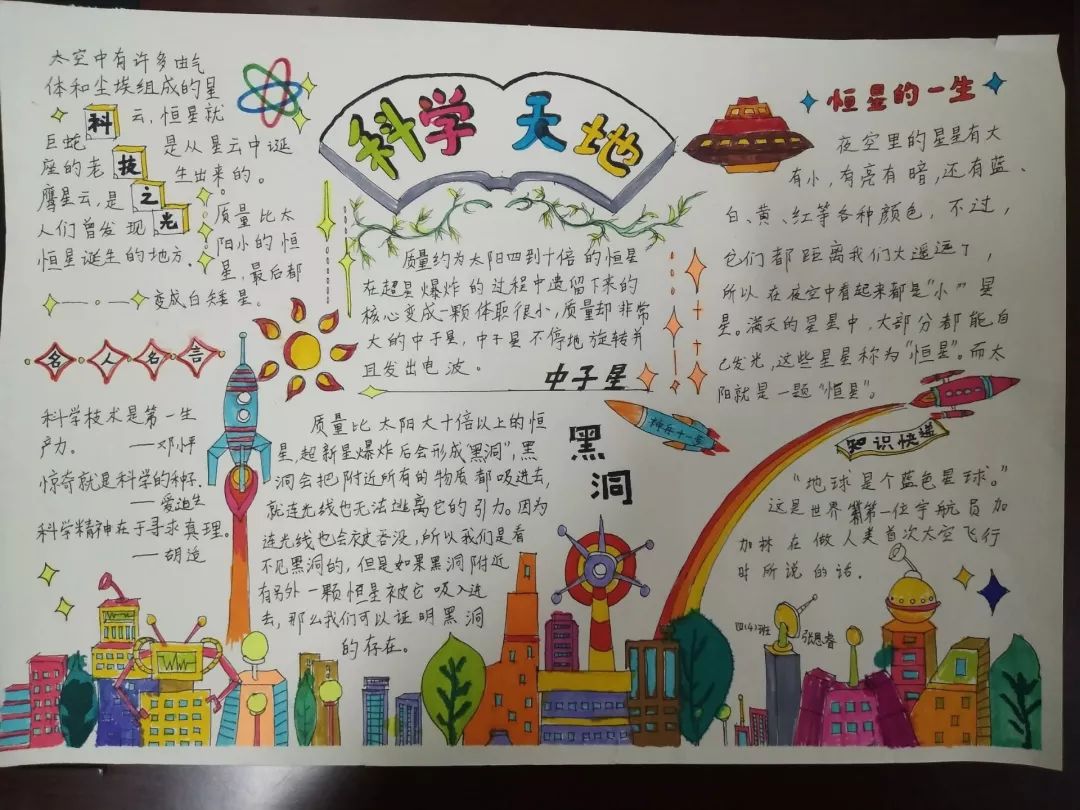 科学天地
太空中有许多由气
体和尘埃组成的星
云,恒星就
巨蛇
是从星云中诞
座的老
生出来的。
鹰星云,是
人们曾发现
恒星诞生的地方.
科
技
之
光
质量比太
阳小的恒
星,最后都
变成白矮星.
名人名言
科学技术是第一生
产力.
——邓小平
惊奇就是科学的种子.
——爱迪生
科学精神在于寻求真理。
——胡适
质量约为太阳四到十倍的恒星
在超星爆炸的过程中遗留下来的
核心变成一颗体积很小,质量却非常
大的中子星,中子星不停地旋转并
且发出电波.
中子星
质量比太阳大十倍以上的恒
星,超新星爆炸后会形成"黑洞",黑
洞会把附近所有的物质都吸进去,
就连光线也无法逃离它的引力。因为
连光线也会被吞没,所以我们是看
不见黑洞的,但是如果黑洞附近
有另外一颗恒星被它吸入进
去,那么我们可以证明黑洞
的存在。
黑洞
神舟十一号
恒星的一生
夜空里的星星有大
有小,有亮有暗,还有蓝、
白、黄、红等各种颜色,不过,
它们都距离我们太遥远了,
所以在夜空中看起来都是"小"星
星。满天的星星中,大部分都能自
己发光,这些星星称为"恒星"。而太
阳就是一题"恒星"。
知识快递
"地球是个蓝色星球."
这是世界第一位宇航员加
加林在做人类首次太空飞行
时所说的话.
四(4)班
张思睿